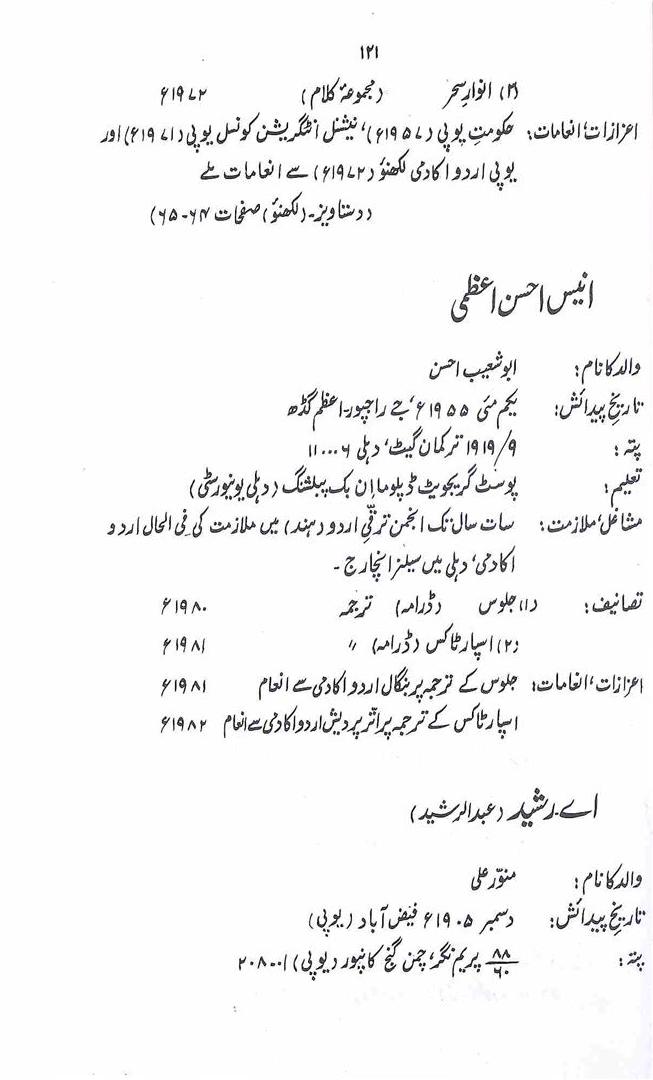 ۱۲۱
(۲) انوارِ سحر (مجموعۂ کلام) ۱۹۷۲ء
اعزازات، انعامات: حکومتِ یوپی (۱۹۵۷ء)، نیشنل انٹگریشن کونسل یوپی (۱۹۷۱ء) اور
یوپی اردو اکادمی لکھنؤ (۱۹۷۲ء) سے انعامات ملے
(دستاویز۔ (لکھنؤ) صفحات ۶۴-۶۵)
انیس احسن اعظمی
والد کا نام: ابوشعیب احسن
تاریخِ پیدائش: یکم مئی ۱۹۵۵ء، جے راجپور۔ اعظم گڈھ
پتہ: ۱۹۱۹/۹ ترکمان گیٹ، دہلی ۱۱۰۰۰۶
تعلیم: پوسٹ گریجویٹ ڈپلوما ان بک پبلشنگ (دہلی یونیورسٹی)
مشاغل، ملازمت: سات سال تک انجمن ترقّیِ اردو (ہند) میں ملازمت کی فی الحال اردو
اکادمی، دہلی میں سیلز انچارج۔
تصانیف: (۱) جلوس (ڈرامہ) ترجمہ ۱۹۸۰ء
(۲) اسپارٹاکس (ڈرامہ) 〃 ۱۹۸۱ء
اعزازات، انعامات: جلوس کے ترجمہ پر بنگال اردو اکادمی سے انعام ۱۹۸۱ء
اسپارٹاکس کے ترجمہ پر اتر پردیش اردو اکادمی سے انعام ۱۹۸۲ء
اے۔ رشید (عبدالرشید)
والد کا نام: منوّر علی
تاریخِ پیدائش: دسمبر ۱۹۰۵ء فیض آباد (یوپی)
پتہ: ۸۸/۶۰ پریم نگر، چمن گنج کانپور (یوپی) ۲۰۸۰۰۱